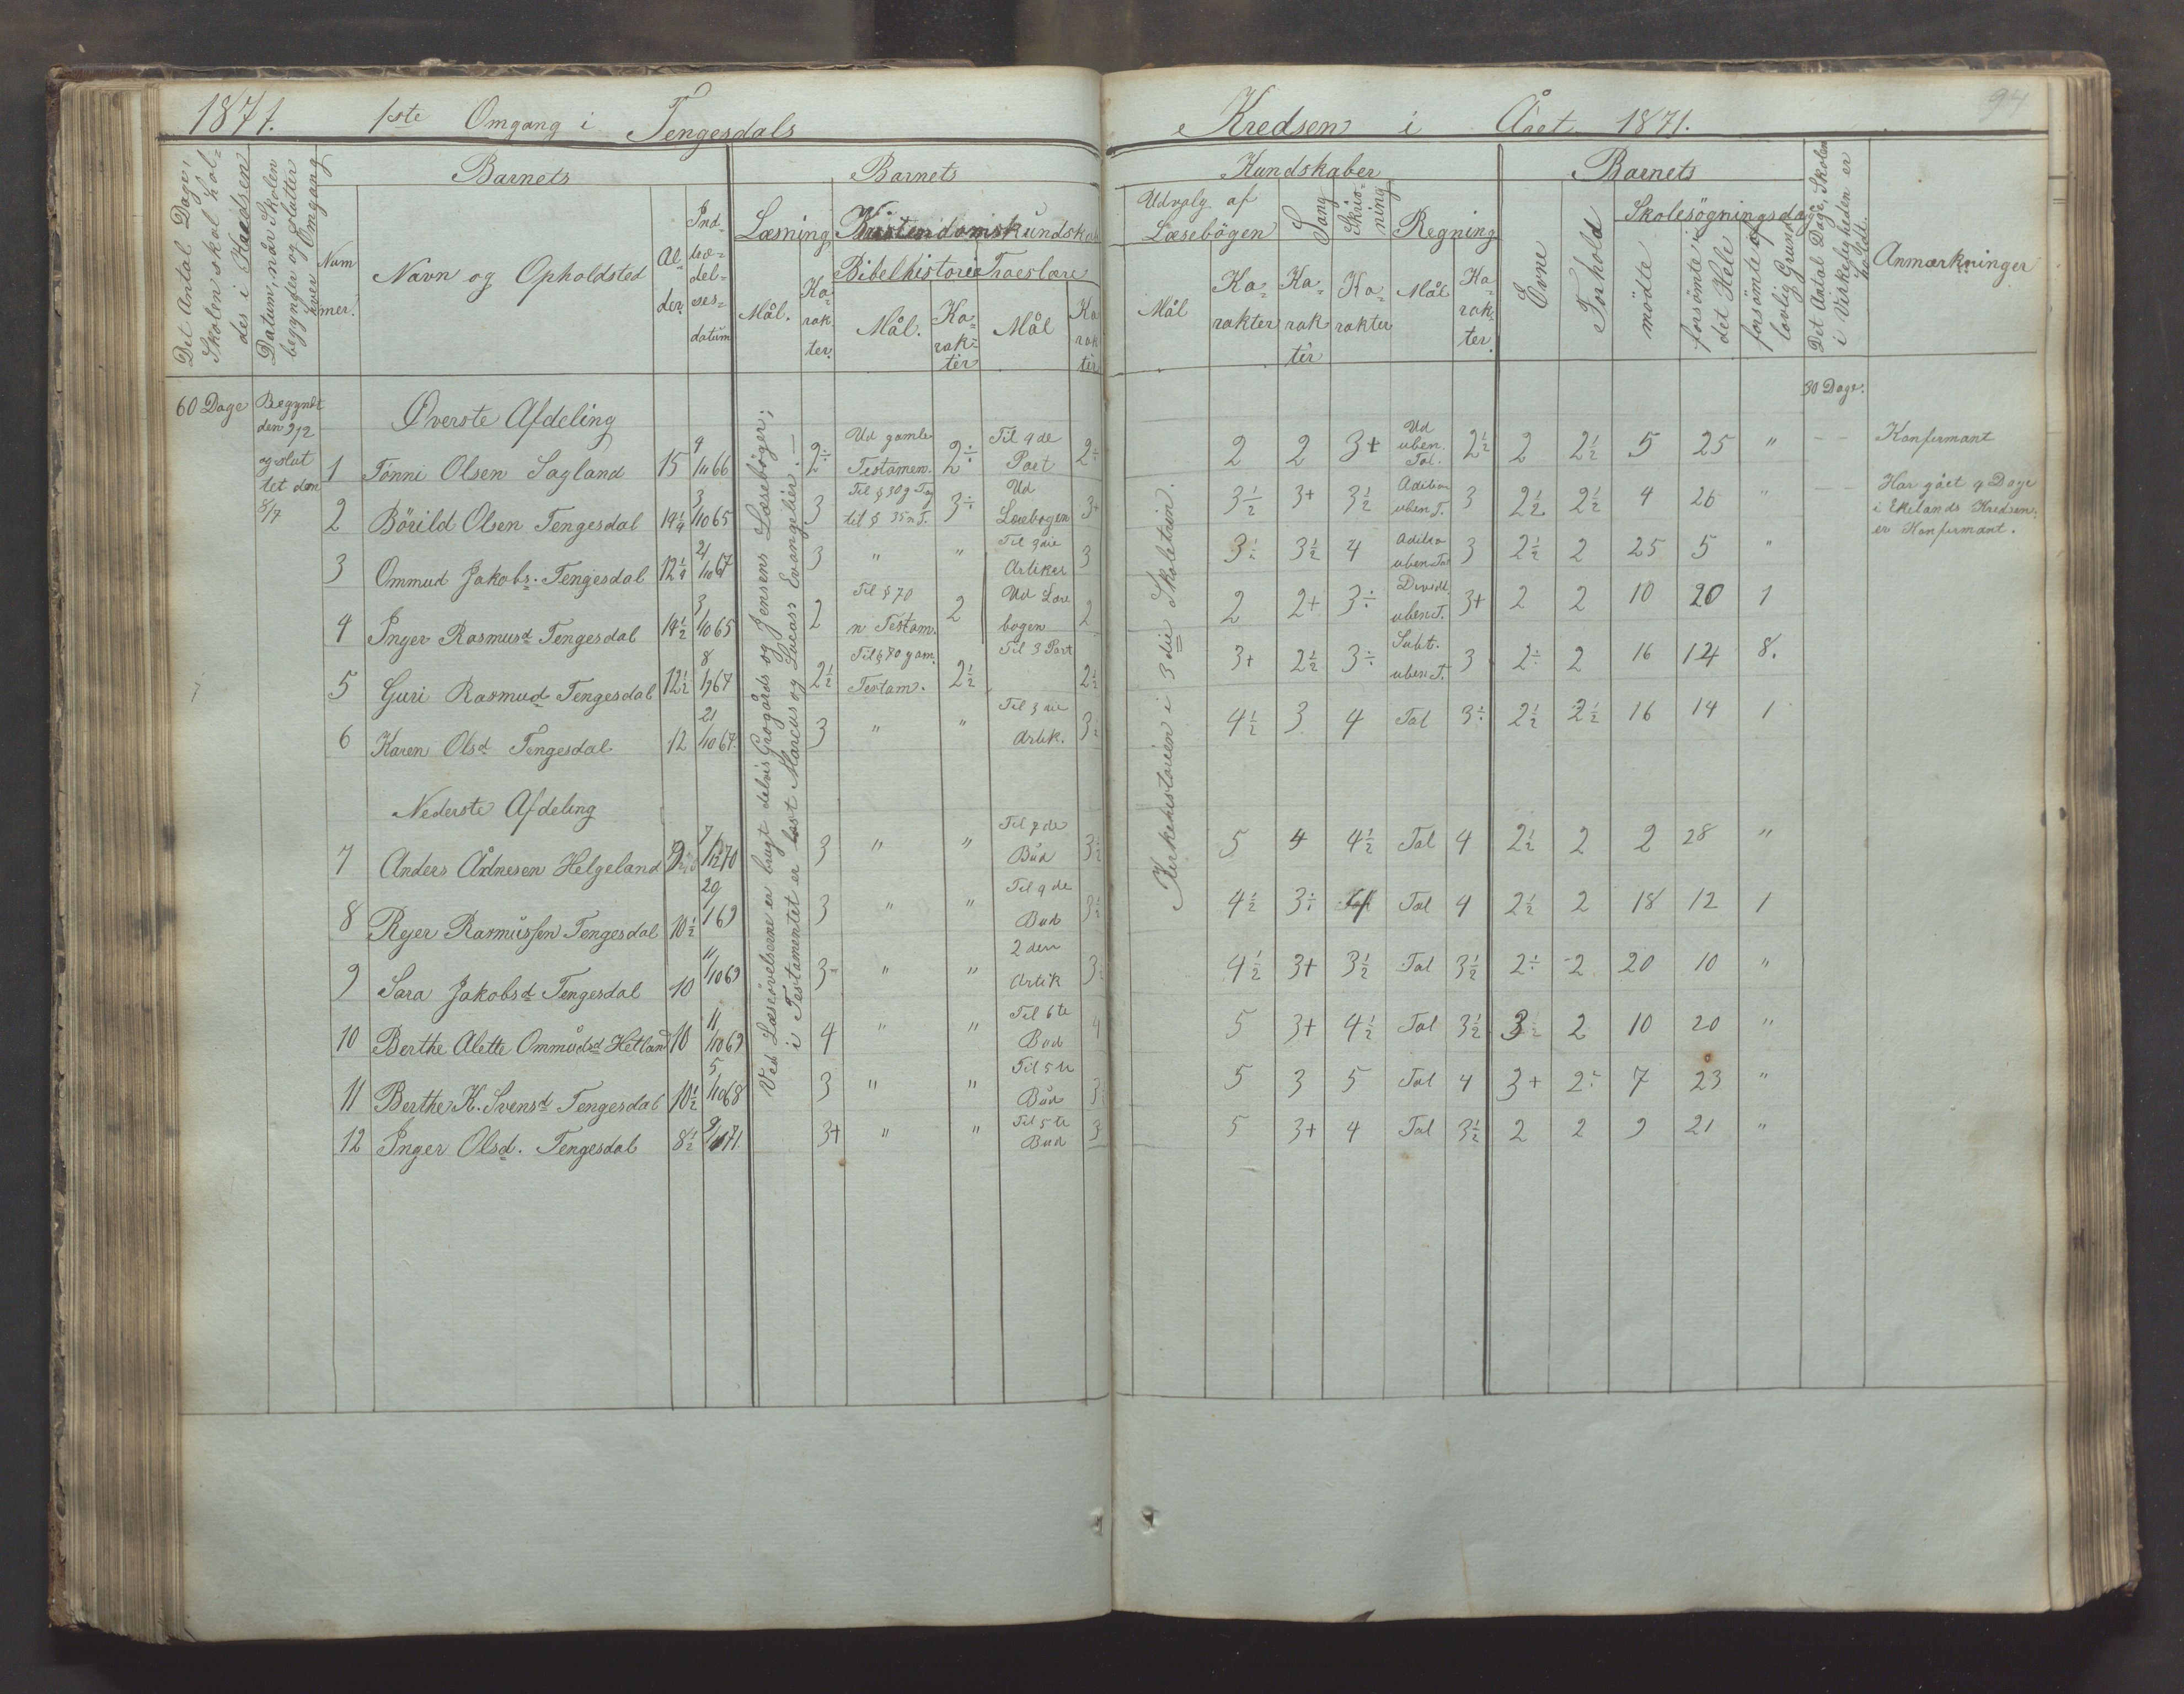 1871. 1ste Omgang i Tengesdals Kredsen i Året 1871.
94
Det Antal Dage,
Skolen skal hol-
des i Kredsen
Datum, når Skolen
begynder og slutter
hver Omgang
Num
mer.
Barnets
Navn og Opholdsted
Al-
der.
Ind-
træ-
del-
ses-
datum
Barnets
Læsning
Mål.
Ka-
rak
ter.
Kristendomskundskab
Bibelhistorie
Mål.
Ka-
rak-
ter
Troeslære
Mål
Ka
rak
ter
Kundskaber
Udvalg af
Læsebögen
Mål
Ka-
rakter
Sang
Ka-
rak
ter
Skriv-
ning
Ka-
rakter
Regning
Mål
Ka-
rak-
ter.
Barnets
Evne
Forhold
Skolesögningsdage
mödte
forsömte i
det Hele
forsömte af
lovlig Grund
Det Antal Dage, Skolen
i Virkeligheden er
holdt.
Anmærkninger
60 Dage
Begyndt
den 9/2
og slut
tet den
8/7
30 Dage.
Ved Læseövelserne er brugt delvis Grogårds og Jensens Læsebøger;
i Testamentet er læst Marcus og Lucass Evangelier. —
Kirkehistorien i 3die Skoletrin.
Øverste Afdeling
1 Tönni Olsen Sagland 15 4/10 66 2÷ Ud gamle Testamen. 2÷ Til 4de Part 2÷ 2 2 3+ Ud uben. Tal. 2½ 2 2½ 5 25 " Konfirmant
2 Börild Olsen Tengesdal 14¼ 3/10 65 3 Til § 30 g Tog til § 35 n T. 3÷ Ud Lærebogen 3+ 3½ 3+ 3½ Adition uben T. 3 2½ 2½ 4 26 " Har gået 9 Dage
i Ekelands Kredsen.
er Konfirmant.
3 Ommud Jakobs. Tengesdal 12¼ 21/10 67 3 " " Til 3die Artikel 3 3÷ 3½ 4 Adition uben Tal 3 2½ 2 25 5 "
4 Inger Rasmusd Tengesdal 14½ 3/10 65 2 Til § 70 n Testam. 2 Ud Lære bogen 2 2 2+ 3÷ Divid. uben T. 3+ 2 2 10 20 1
5 Guri Rasmusd Tengesdal 12½ 8/1 67 2½ Til § 70 gam. Testam. 2½ Til 3 Part 2½ 3+ 2½ 3÷ Subt. uben T. 3 2÷ 2 16 14 8.
6 Karen Olsd Tengesdal 12 21/10 67. 3 " " Til 3die Artik. 3½ 4½ 3 4 Tal 3÷ 2½ 2½ 16 14 1
Nederste Afdeling
7 Anders Ådnesen Helgeland 9 7/12 70 3 " " Til 7de Bud 3½ 5 4 4½ Tal 4 2½ 2 2 28 "
8 Rejer Rasmussen Tengesdal 10½ 29/1 69 3 " " Til 9de Bud 3½ 4½ 3÷ 4 Tal 4 2½ 2 18 12 1
9 Sara Jakobsd Tengesdal 10 11/10 69 3- " " 2den Artik 3÷ 4½ 3+ 3½ Tal 3½ 2÷ 2 20 10 "
10 Berthe Alette Ommudsd Hetland 10 11/10 69 4 " " Til 6te Bud 4 5 3+ 4½ Tal 3½ 3÷ 2 10 20 "
11 Berthe K. Svensd Tengesdal 10½ 5/10 68 3 " " Til 5te Bud 3½ 5 3 5 Tal 4 3+ 2÷ 7 23 "
12 Inger Olsd. Tengesdal 8½ 9/1 71. 3+ " " Til 5te Bud 3 5 3+ 4 Tal 3½ 2 2 9 21 "